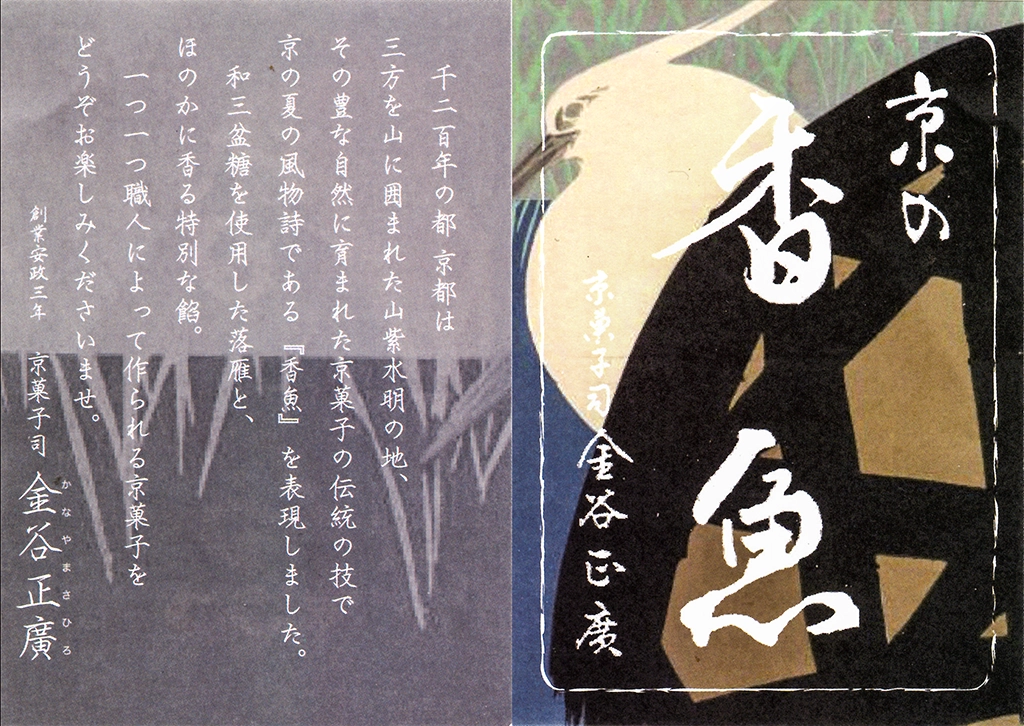 京の
香魚
京菓子司 金谷正廣
千二百年の都 京都は
三方を山に囲まれた山紫水明の地、
その豊な自然に育まれた京菓子の伝統の技で
京の夏の風物詩である『香魚』を表現しました。
和三盆糖を使用した落雁と、
ほのかに香る特別な餡。
一つ一つ職人によって作られる京菓子を
どうぞお楽しみくださいませ。
創業安政三年 京菓子司 金谷正廣
かなやまさひろ